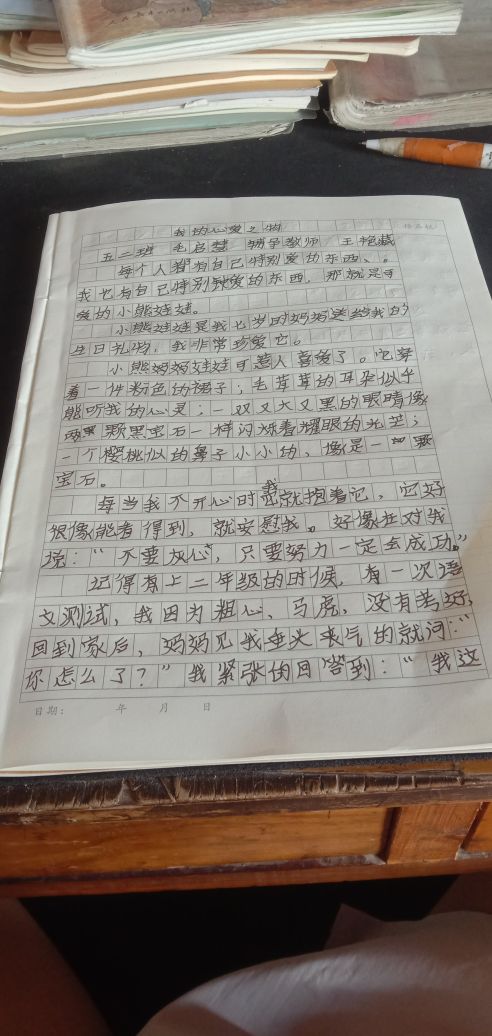 我的心爱之物
五二班 毛启慧 辅导教师 王艳藏
每个人都有自己特别爱的东西、。
我也有自己特别爱的东西，那就是可
爱的小熊娃娃。
小熊娃娃是我七岁的妈妈送给我的
生日礼物，我非常珍爱它。
小熊妈妈娃娃可惹人喜爱了。它穿
着一件粉色的裙子；毛茸茸的耳朵似乎
能听我的心灵；一双又大又黑的眼睛像
两颗黑宝石一样闪烁着耀眼的光芒；
一个樱桃似的鼻子小小的，像是一颗
宝石。
每当我不开心时我就抱着它，它好
很像能看得到，就安慰我。好像在对我
说：“不要灰心，只要努力一定会成功。”
记得有上二年级的时候，有一次语
文测试，我因为粗心、马虎，没有考好，
回到家后，妈妈见我垂头丧气的就问：“
你怎么了？”我紧张的回答到：“我这
日期： 年 月 日